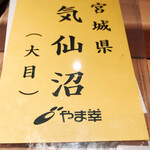 宮城県
気仙沼
(大目)
やま幸